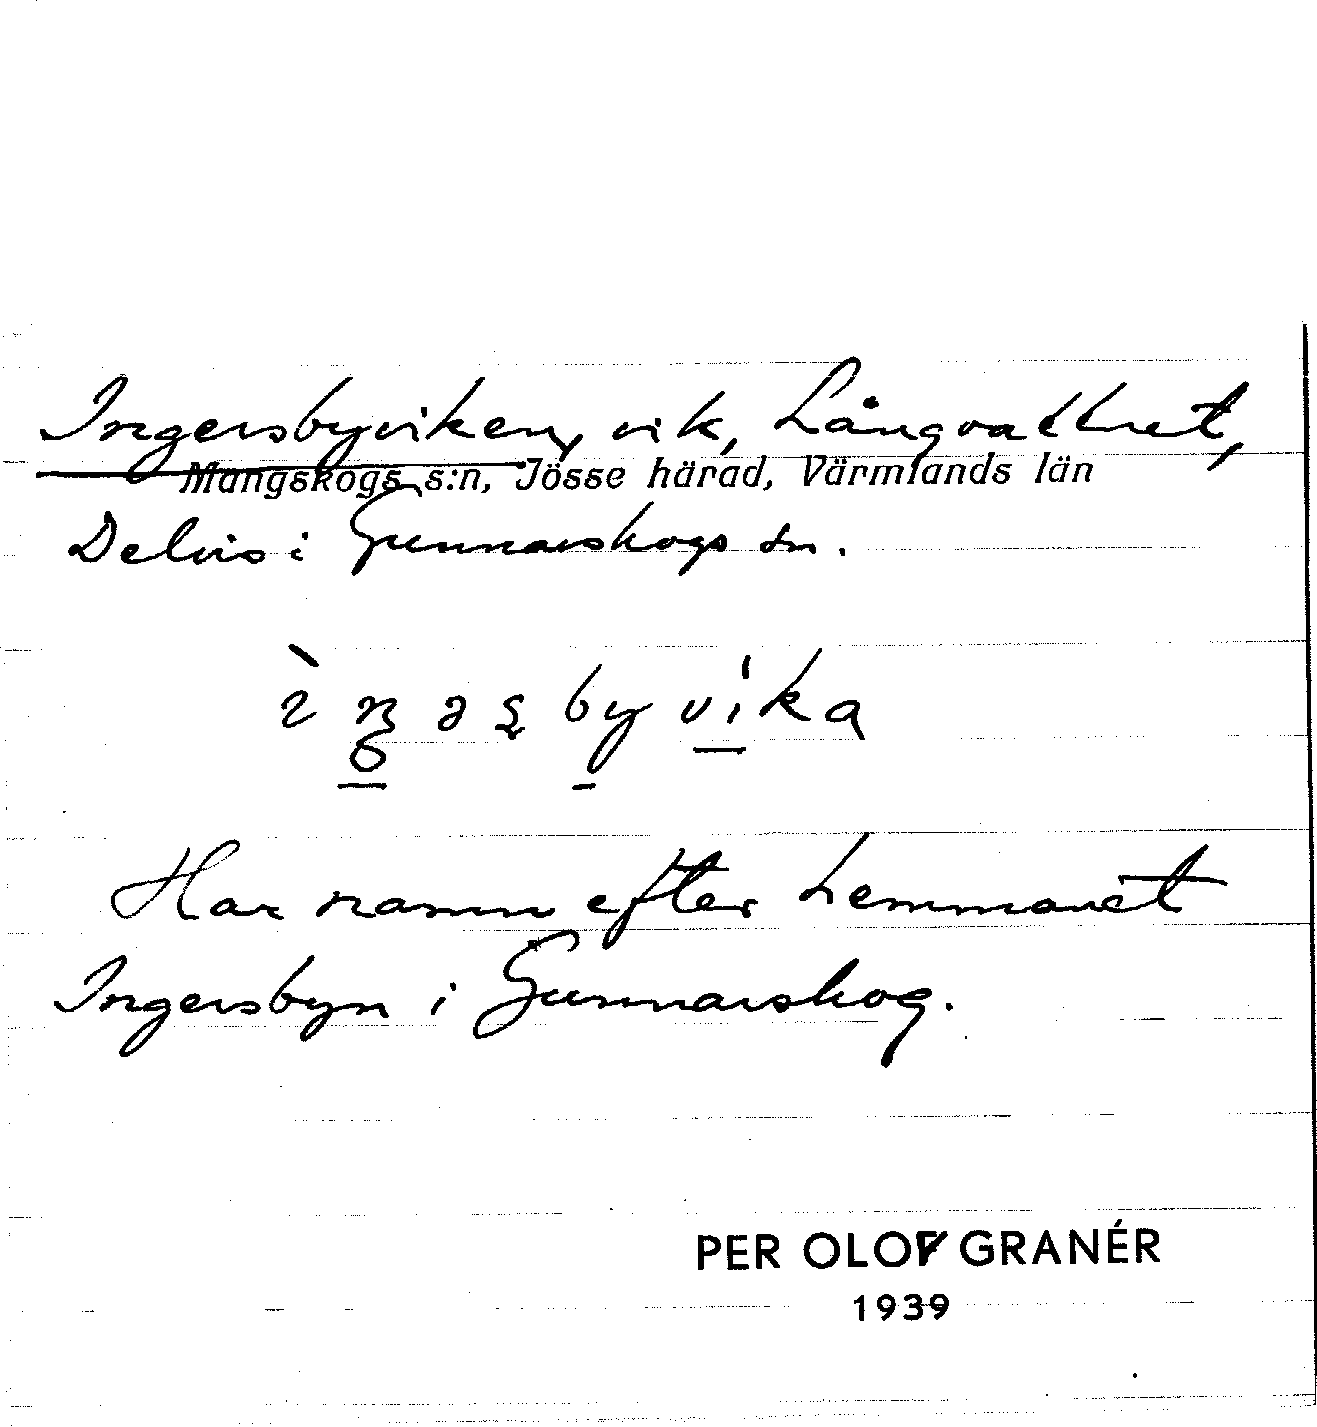 Ingersbyviken, vik, Långvattnet,
Mangskogs s:n, Jösse härad, Värmlands län
Delvis i Gunnarskogs sn.
byvika
Har namn efter hemmanet
Ingersbyn i Gunnarskog.
PER OLOF GRANÉR
1939